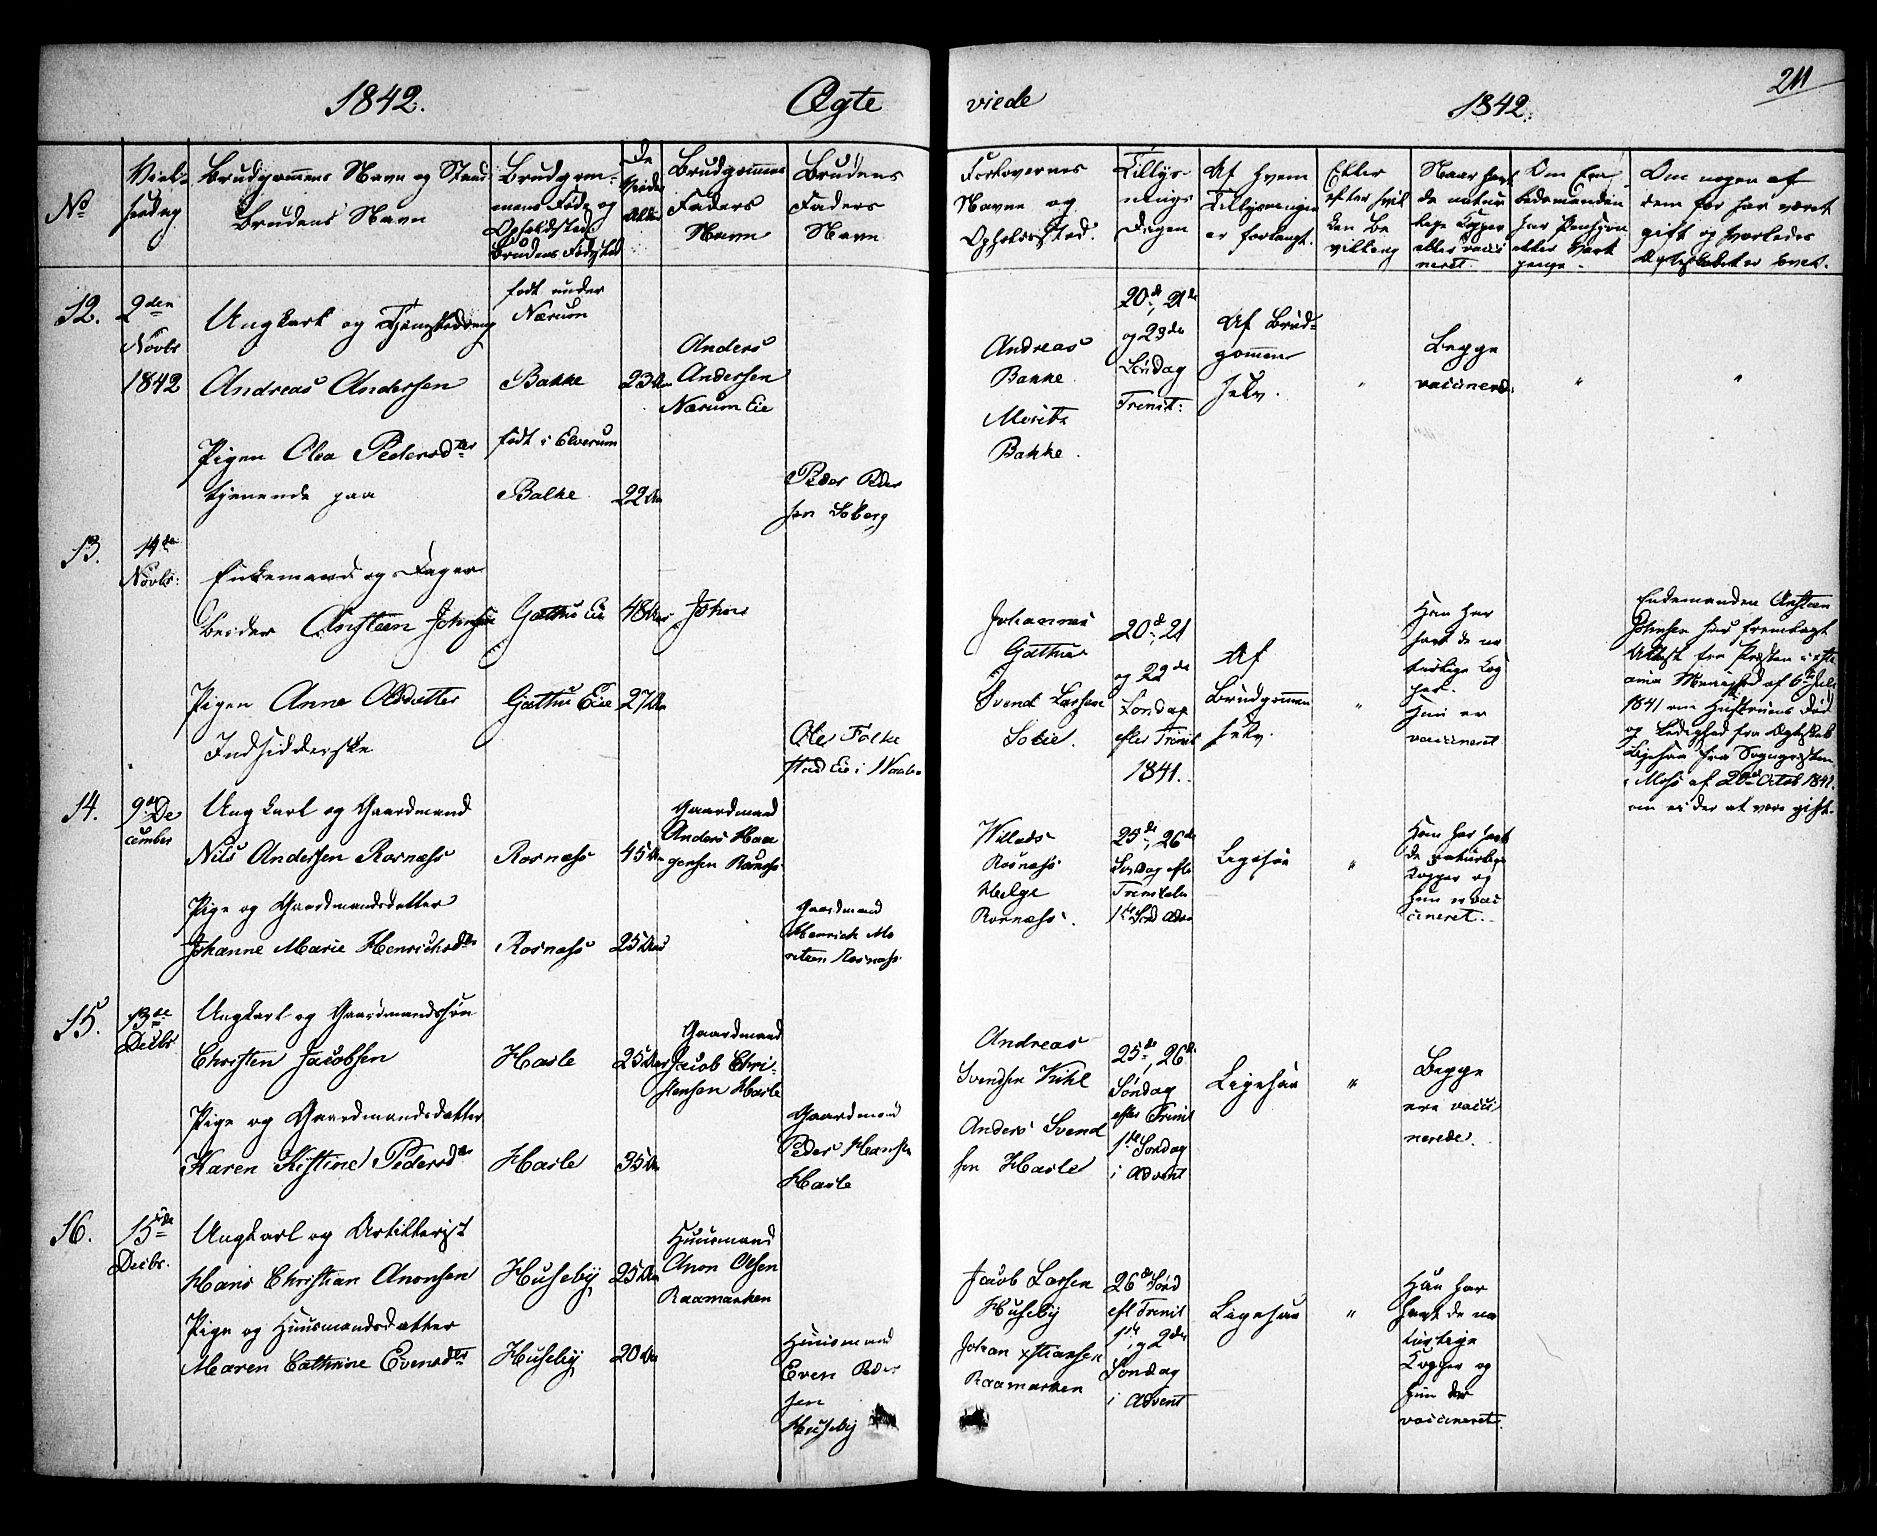 1842. Ægte viede 1842. 211
No
Viel-
sesdag
Brudgommens Navn og Stand
Brudens Navn
Brudgom-
mens Føde og
Opholdsted.
Brudens Fødested
De
Viedes
Alder
Brudgommens
Faders
Navn
Brudens
Faders
Navn
Forlovernes
Navne og
Opholdssted.
Tillys-
nings
Dagen
Af hvem
Tillysningen
er forlangt.
Eller
efter hvil
ken Be
villing
Naar havt
de natur
lige Kopper
eller vacci
neret.
Om En-
kemanden
har Pension
eller Vart
penge.
Om nogen af
dem før har været
gift og hvorledes
Ægteskabet er hævet.
12.
2den
Novbr
1842
Ungkarl og Tjenestedreng
Andreas Andersen
Pigen Olea Pedersdtr
tjenende paa
født under
Nærum
Bakke
født i Elverum
Bakke
23 Aar
22 Aar
Anders
Andersen
Nærum Eie
Peder Peder
sen Soberg
Andreas
Bakke
Moritz
Bakke.
20de, 21de
og 23de
Søndag
Trinit:
Af Brud-
gommen
selv.
"
Begge
vaccinerede.
"
"
13.
14de
Novbr:
Enkemand og Dagar
beider Ansteen Johnsen
Pigen Anne Olsdatter
Indsidderske
Gathus Eie
Gathus Eie
48 Aar
27 Aar
John
Ole Folke
stad Eie i Waaler
Johannes
Gathus
Svend Larsen
Solie.
20de, 21
og 22de
Søndag
efter Trinit
1841.
Af
Brudgommen
selv.
"
Han har
havt de na
turlige Kop
per.
Hun er
vaccineret
Enkemanden Ansteen
Johnsen har fremlagt
Attest fra Præsten i
Menighed af 6te Juli
1841 om Hustruens Død
og Ledighed fra Ægteskab
Ligesaa fra Sognepræsten
i Moss af 20de Octob 1841.
om ei der at være gift.
14.
9de De
cember
Ungkarl og Gaardmand
Nils Andersen Rosnæss
Pige og Gaardmandsdatter
Johanne Marie Henrichsdtr
Rosnæss
Rosnæss
45 Aar
25 Aar
Gaardmand
Anders Haa
gensen Rosnæss
Gaardmand
Henrich Mo
ritzen Rosnæss.
Willads
Rosnæss
Helge
Rosnæss.
25de, 26de
Søndag efter
Trinitatis
1ste Sønd Adv
Ligesaa
"
Han har havt
de naturlige
Kopper og
hun er vac
cineret.
15.
13de
Decbr
Ungkarl og Gaardmandssøn
Christen Jacobsen
Pige og Gaardmandsdatter
Karen Kistine Pedersdtr
Hasle
Hasle
25 Aar
35 Aar
Gaardmand
Jacob Chri-
stensen Hasle
Gaardmand
Peder Hansen
Hasle
Andreas
Svendsen Kihl
Anders Svend
sen Hasle
25de, 26de
Søndag
efter Trinit
1ste Søndag
i Advent
Ligesaa
"
Begge
ere vacci
nerede.
16.
15de
Decbr.
Ungkarl og Artillerist
Hans Christian Anonsen
Pige og Huusmandsdatter
Maren Cathrine Evensdtr
Huseby
Huseby
25 Aar
20 Aar
Huusmand
Anon Olsen
Raamarken
Huusmand
Even Peder
sen
Huseby
Jacob Larsen
Huseby
Johan Xstiansen
Raamarken
26de Sønd
eft Trinit
1ste og 2den
Søndag
i Advent
Ligesaa
"
Han har
havt de na
turlige
Kopper og
hun der
vaccineret.